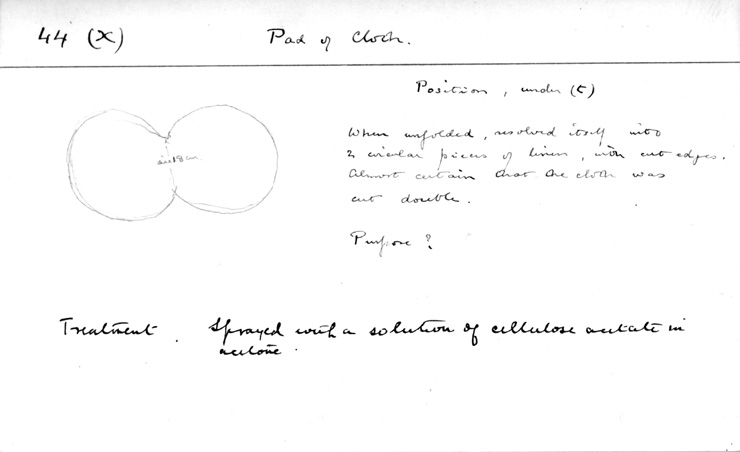 44 (X)
Pad of Cloth.
Position, under (t)
18 cm
When unfolded, resolved itself into
2 circular pieces of linen, with cut edges.
Almost certain that the cloth was
cut double.
Purpose?
Treatment. Sprayed with a solution of cellulose acetate in
acetone.